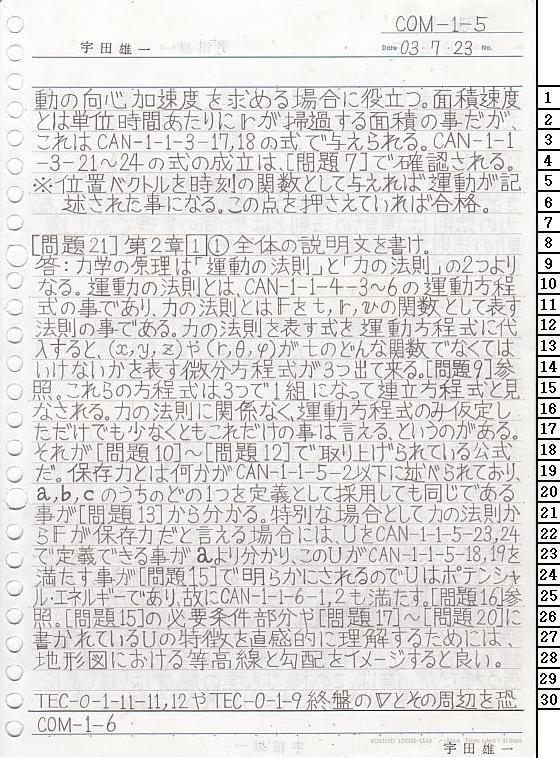 COM-1-5
宇田雄一
Date 03・7・23 No.
動の向心加速度を求める場合に役立つ。面積速度
とは単位時間あたりにrが掃過する面積の事だが、
これはCAN-1-1-3-17,18の式で与えられる。CAN-1-1
-3-21〜24の式の成立は、[問題7]で確認される。
※位置ベクトルを時刻の関数として与えれば運動が記
述された事になる。この点を押さえていれば合格。
[問題21]第2章[1]①全体の説明文を書け。
答:力学の原理は「運動の法則」と「力の法則」の2つより
なる。運動の法則とは、CAN-1-1-4-3〜6の運動方程
式の事であり、力の法則とはFをt,r,vの関数として表す
法則の事である。力の法則を表す式を運動方程式に代
入すると、(x,y,z)や(r,θ,φ)がtのどんな関数でなくては
いけないかを表す微分方程式が3つ出て来る。[問題9]参
照。これらの方程式は3つで1組になって連立方程式と見
なされる。力の法則に関係なく、運動方程式のみ仮定し
ただけでも少なくともこれだけの事は言える、というのがある。
それが[問題10]〜[問題12]で取り上げられている公式
だ。保存力とは何かがCAN-1-1-5-2以下に述べられており、
a,b,cのうちのどの1つを定義として採用しても同じである
事が[問題13]から分かる。特別な場合として力の法則か
らFが保存力だと言える場合には、UをCAN-1-1-5-23,24
で定義できる事がaより分かり、このUがCAN-1-1-5-18,19を
満たす事が[問題15]で明らかにされるのでUはポテンシャ
ル・エネルギーであり、故にCAN-1-1-6-1,2も満たす。[問題16]参
照。[問題15]の必要条件部分や[問題17]〜[問題20]に
書かれているUの特徴を直感的に理解するためには、
地形図における等高線と勾配をイメージすると良い。
TEC-0-1-11-11,12やTEC-0-1-9終盤の▽とその周辺を恐
COM-1-6
宇田雄一
1
2
3
4
5
6
7
8
9
10
11
12
13
14
15
16
17
18
19
20
21
22
23
24
25
26
27
28
29
30